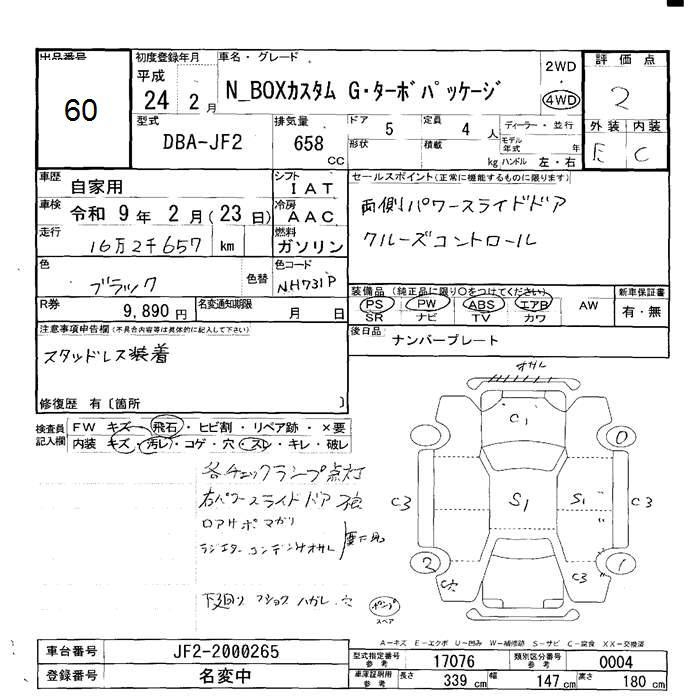 出品番号
60
初度登録年月
平成
24 年 2 月
車名・グレード
N_BOXカスタム G・ターボパッケージ
2WD
・
4WD
評価点
2
型式
DBA-JF2
排気量
658 CC
ドア 5
定員 4 人
形状
積載 kg
ディーラー・並行
モデル年式 年
ハンドル 左・右
外装 内装
E C
車歴 自家用
シフト IAT
車検 令和 9 年 2 月 (23 日)
冷房 AAC
走行 16万2千657 km
燃料 ガソリン
色 ブラック 色替
色コード NH731P
R券 9,890 円
名変通知期限 月 日
セールスポイント(正常に機能するものに限ります)
両側パワースライドドア
クルーズコントロール
装備品(純正品に限り○をつけてください)
PS PW ABS エアB AW
SR ナビ TV カワ
新車保証書
有・無
後日品 ナンバープレート
注意事項申告欄(不具合内容等は具体的に記入して下さい)
スタッドレス装着
修復歴 有〔箇所 〕
検査員記入欄
FW キズ・飛石・ヒビ割・リペア跡・×要
内装 キズ・汚レ・コゲ・穴・スレ・キレ・破レ
各チェックランプ点灯
右パワースライドドア
ロアサポマガリ
ラジエターコンデンサオサレ
下廻り フショク ハガレ 穴
ポンプ
スペア
オサレ
C1
0
C3
S1
S1
C3
2
1
C穴
C3
A―キズ E―エクボ U―凹み W―補修跡 S―サビ C―腐食 XX―交換済
車台番号 JF2-2000265
登録番号 名変中
型式指定番号 参考 17076
類別区分番号 参考 0004
車庫証明用 参考
長さ 339 cm
幅 147 cm
高さ 180 cm